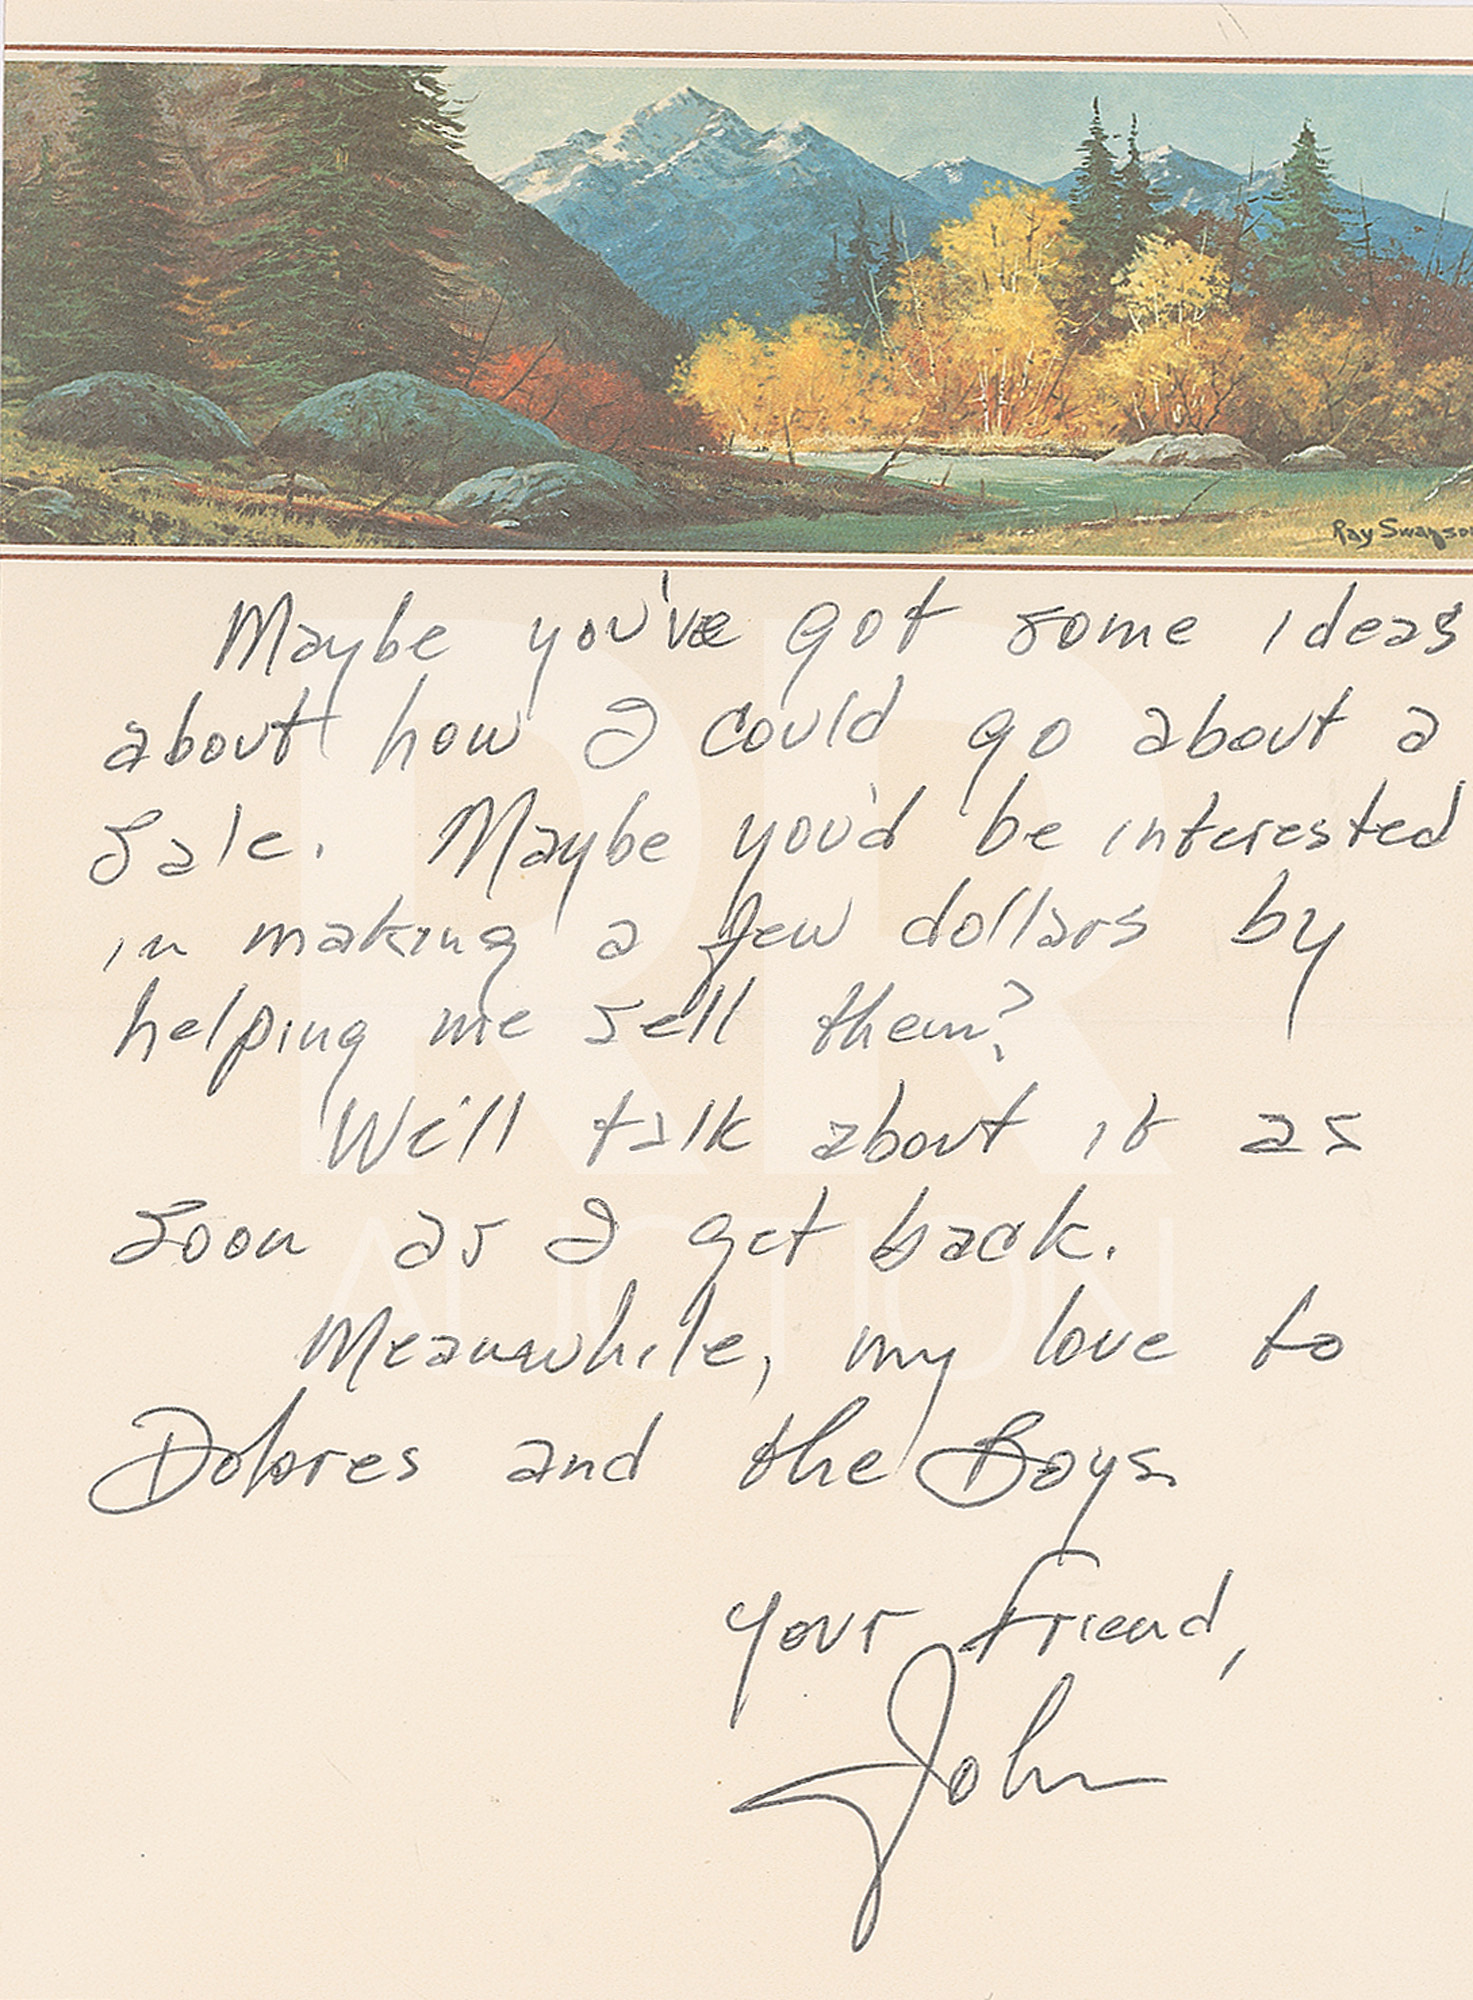 Ray Swanson
Maybe you've got some ideas
about how I could go about a
sale. Maybe you'd be interested
in making a few dollars by
helping me sell them?
We'll talk about it as
soon as I get back.
Meanwhile, my love to
Dolores and the Boys.
your friend,
John
RR
AUCTION